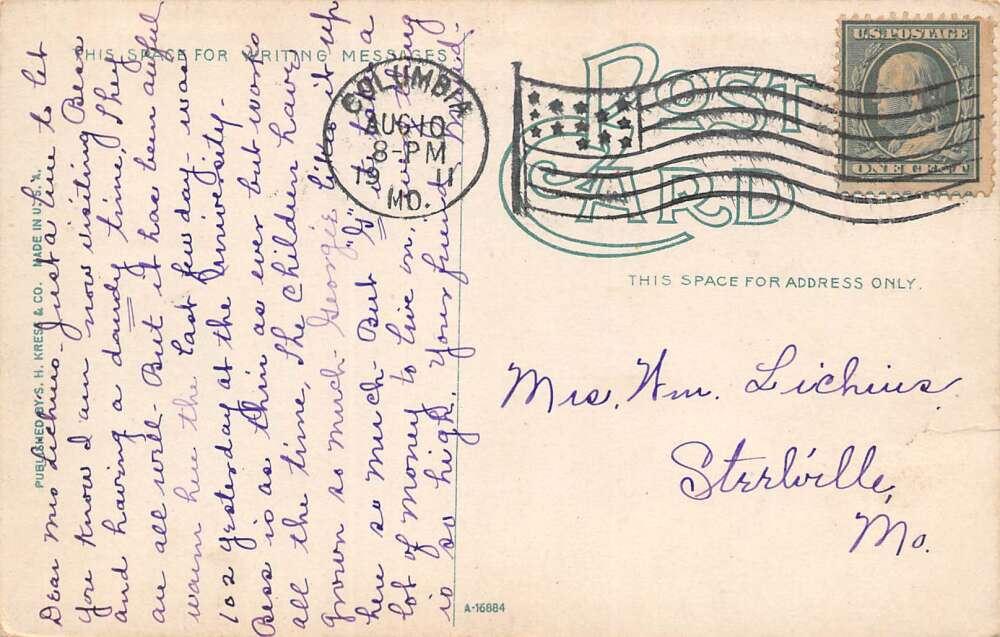 THIS SPACE FOR WRITING MESSAGES
POST CARD
U.S. POSTAGE
ONE CENT
COLUMBIA
AUG 10
8-PM
19 11
MO.
THIS SPACE FOR ADDRESS ONLY.
Mrs. Wm. Lichius
Steelville,
Mo.
PUBLISHED BY S. H. KRESS & CO. MADE IN U.S.A.
Dear Mrs Lichius - Just a line to let
you know I am now visiting Bess
and having a dandy time, They
are all well - But it has been awful
warm here the last few day - was
102 yesterday at the University -
Bess is as thin as ever but works
all the time, The Children have
grown so much - Georgie likes it up
here so much - But "G" it takes a
lot of money to live on, everything
is so high. Your friend
A-16884